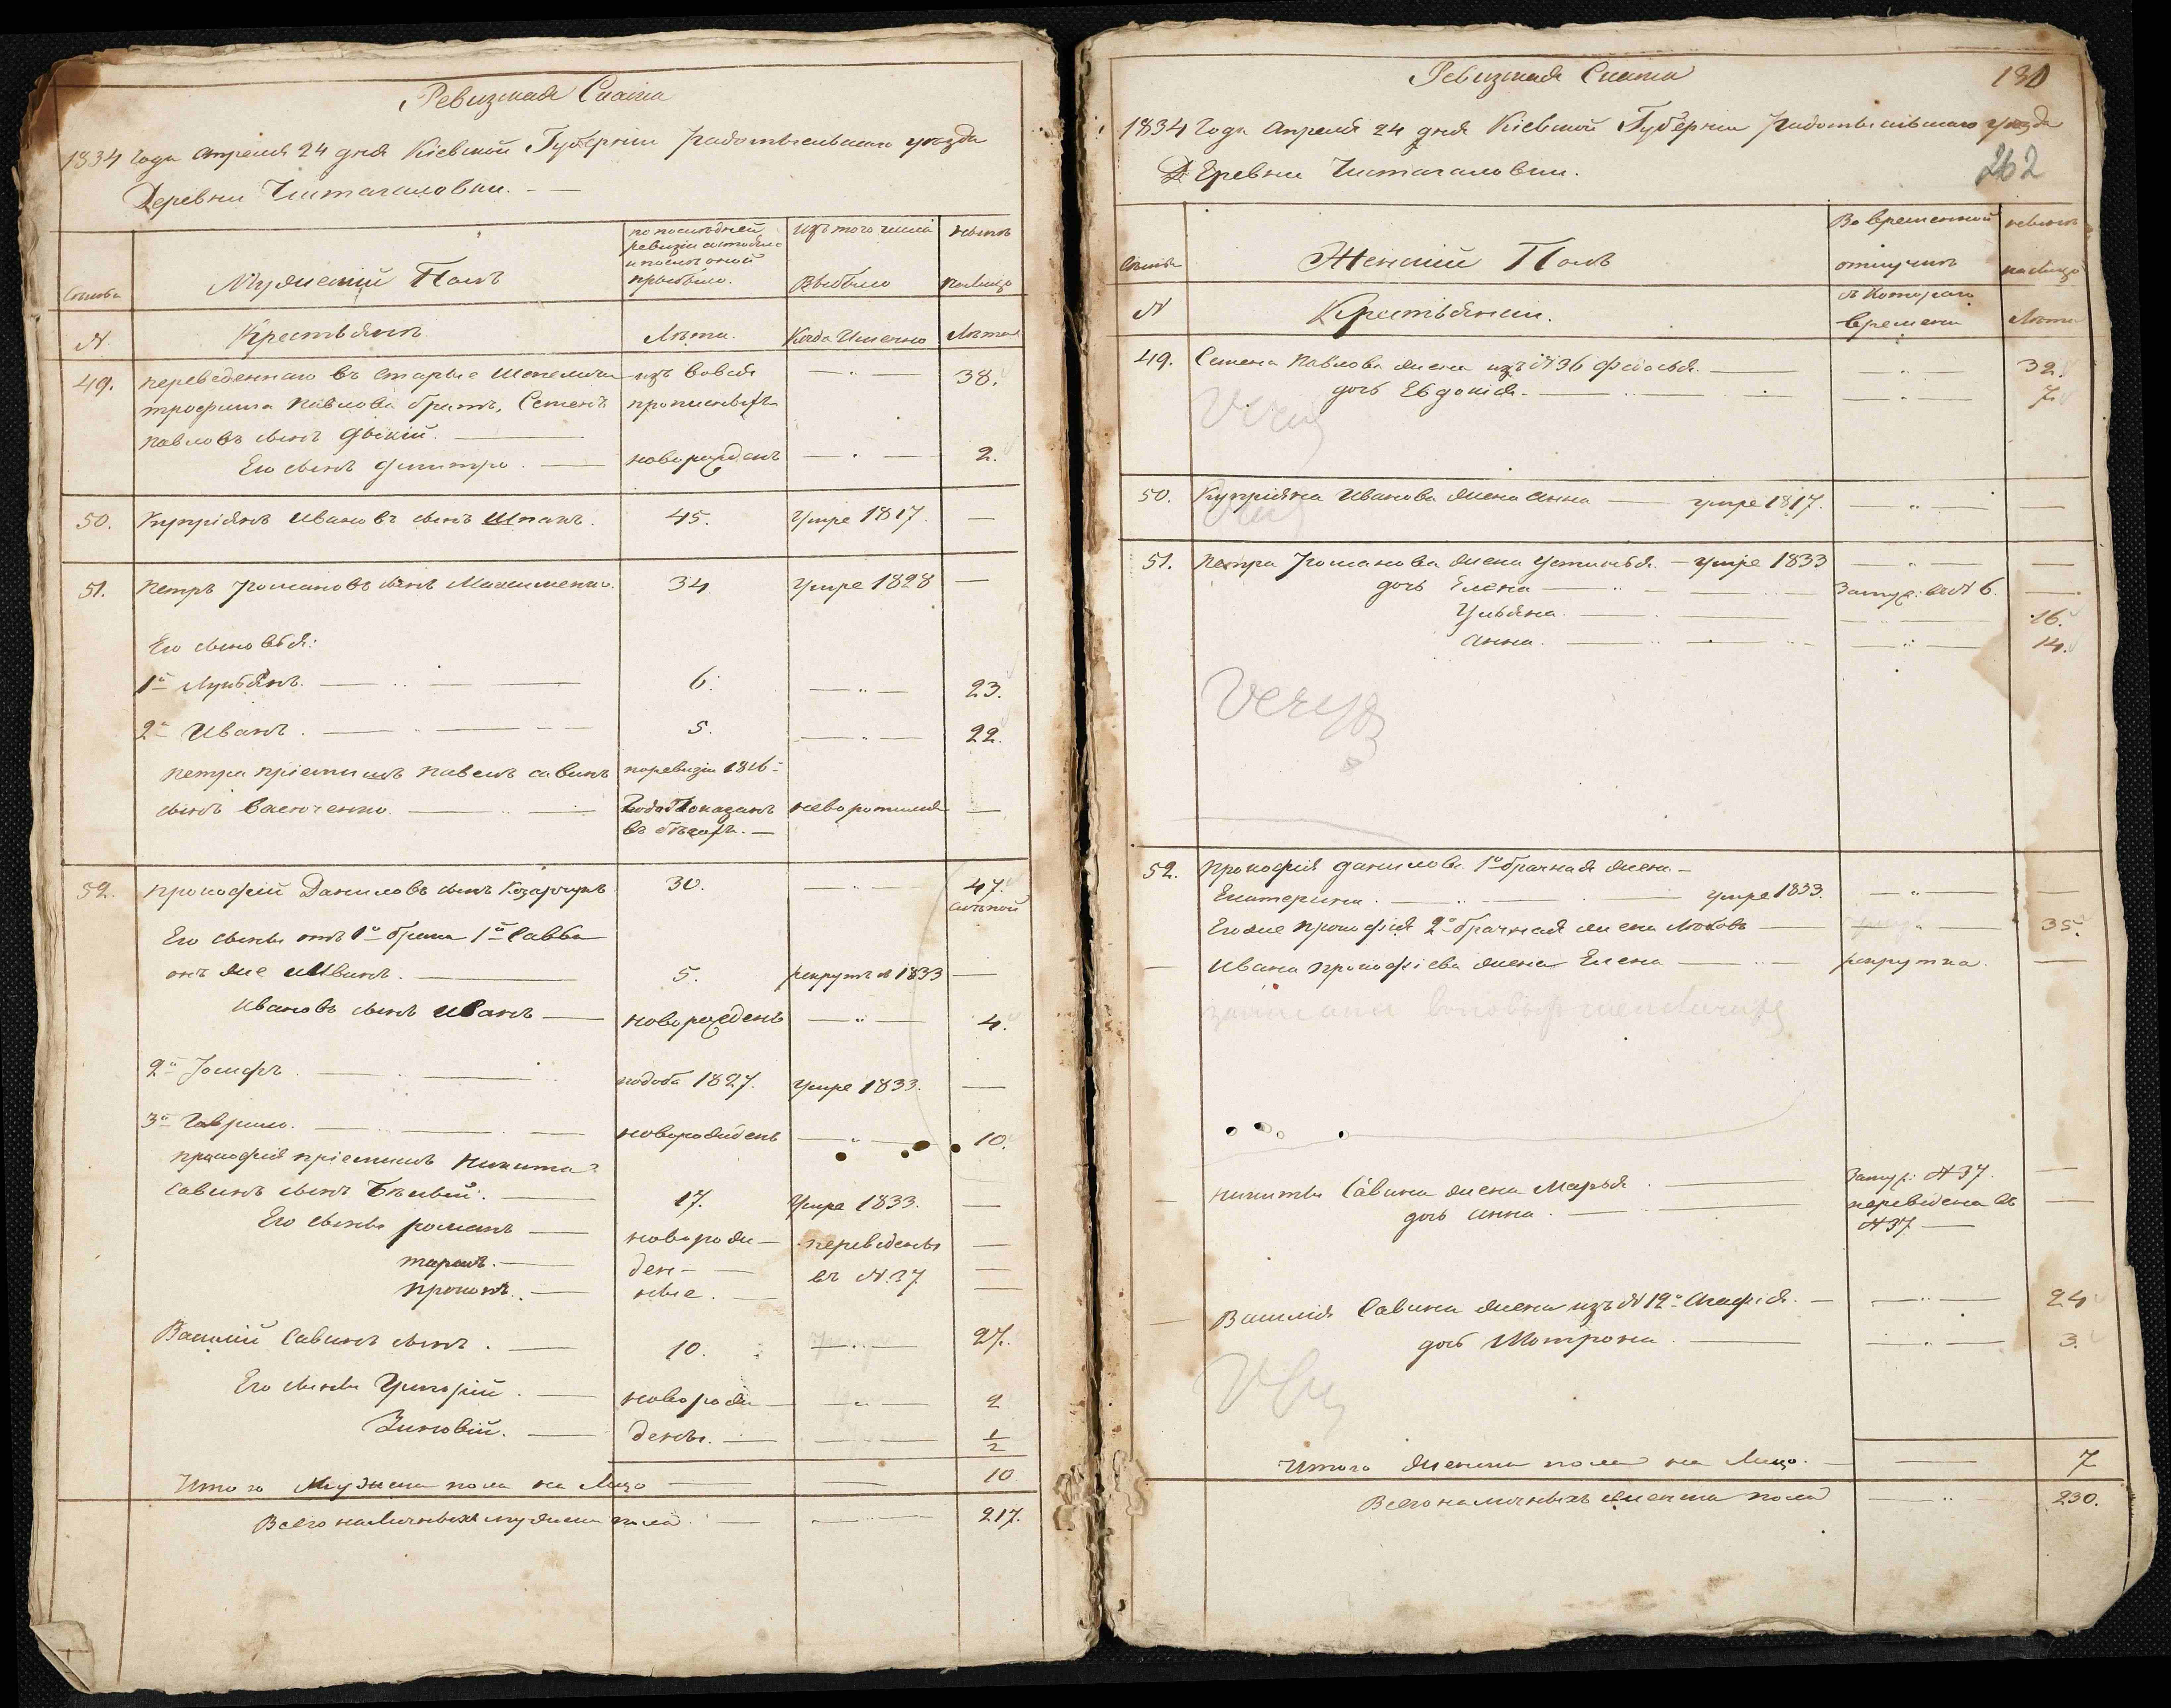 Ревизская Сказка
1834 года апреля 24 дня Кіевской Губерніи Радомысльскаго уѣзда
Деревни Чистагаловки.
Семьи
Мужескій Полъ
по послѣдней
ревизіи состояло
и послѣ оной
прибыло.
изъ того числа
Выбыло
нынѣ
налицо
№
Крестьянъ
Лѣта.
Когда Именно
Лѣта
49. переведеннаго въ старые Шепеличи изъ вовся 38.
трофима Павлова братъ, Семенъ прописныхъ
Павловъ сынъ
Его сынъ Дмитро. новорожденъ 2.
50. Купріянъ Ивановъ сынъ Шпакъ. 45. Умре 1817.
51. Петръ Романовъ сынъ Максименко. 34 Умре 1828
Его сыновья:
1й Лукьянъ. 6. 23.
2й Иванъ. 5. 22.
Петра пріемышъ Павелъ савинъ поревизіи 1816
сынъ года показанъ неворотился
въ бѣгахъ.
52. Прокофій Даниловъ сынъ Козарчукъ 30. 47.
слѣпой
Его сыны отъ 1го брака 1й Савва
онъ же Иванъ. 5. рекрутъ в 1833
Ивановъ сынъ Иванъ новорожденъ 4.
2й Іосифъ. 1827. умре 1833.
3й Гаврило. новорожденъ 10.
прокофія пріемышъ Никита
Савинъ сынъ Бѣлый. 17. Умре 1833.
Его сыны романъ новорож переведены
тарасъ. ден въ №.37
прокопъ. ные.
Василій Савинъ сынъ. 10. 27.
Его сыны Григорій. новорож 2
Зиновій. дены. 1/2
Итого Мужеска пола на Лицо 10
Всего наличныхъ мужеска пола. 217.
Ревизская Сказка 130
1834 Года Апреля 24 дня Кіевской Губерніи Радомысльскаго уѣзда
262
Деревни Чистагаловки.
Семьи
Женскій Полъ
Во временной
отлучкѣ
нынѣ
налицо
№
Крестьянки.
съ Котораго
времени
Лѣта
49. Семена Павлова жена изъ №36 Федосья. 32.
дочь Евдокія. 7.
50. Купріяна Иванова жена Анна умре 1817.
51. Петра Романова жена Устинья. умре 1833
дочь Елена Замуж. въ № 6.
Ульяна. 16.
Анна. 14.
52. Прокофія данилова 1о брачная жена
Екатерина. умре 1833.
Егоже прокофія 2о брачная жена Любовь 35.
Ивана прокофіева жена Елена рекрутка.
Никиты Савина жена Марья. Замуж: №37.
дочь Анна. переведена въ
№37.
Василія Савина жена изъ № 12о Агафія. 24
дочь Мотрона. 3.
Итого женска пола на Лицо. 7
Всего наличныхъ женска пола 230.